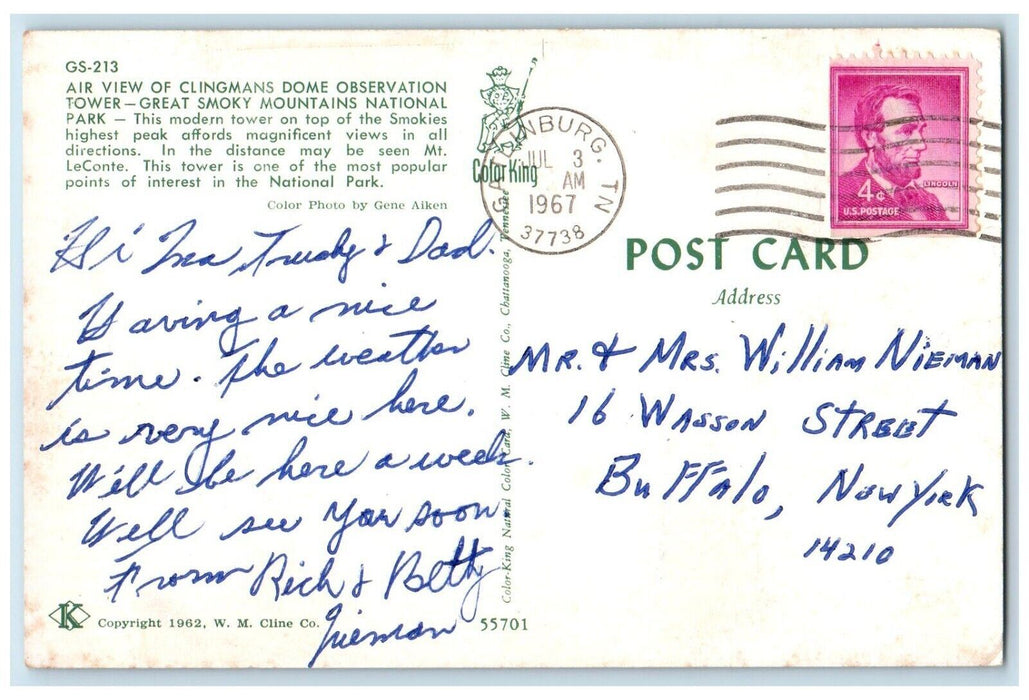 GS-213
AIR VIEW OF CLINGMANS DOME OBSERVATION
TOWER — GREAT SMOKY MOUNTAINS NATIONAL
PARK — This modern tower on top of the Smokies
highest peak affords magnificent views in all
directions. In the distance may be seen Mt.
LeConte. This tower is one of the most popular
points of interest in the National Park.
Color Photo by Gene Aiken
Hi Ma Trudy & Dad.
Having a nice
time. The weather
is very nice here.
Will be here a week.
Will see you soon
From Rich & Betty
Nieman
K Copyright 1962, W. M. Cline Co.
55701
Color King
Color-King Natural Color Card, W. M. Cline Co., Chattanooga, Tennessee
GATLINBURG, TN
JUL 3
AM
1967
37738
4¢
LINCOLN
U.S. POSTAGE
POST CARD
Address
MR. & MRS. William NIEMAN
16 WASSON STREET
BuFFalo, New York
14210